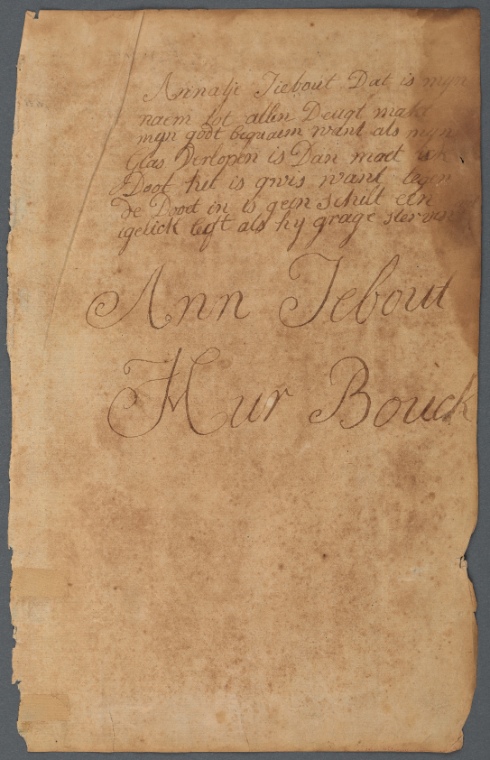 Annatje Tiebout Dat is mijn
naem tot allen Deugt makt
mijn godt bequaim want als mijn
Glas Verlopen is Dan moet ich
Doot hit is gwis want tegen
de Doot in is geen schilt een
igelick leeft als hy grage sterven
Ann Tebout
Hur Bouck